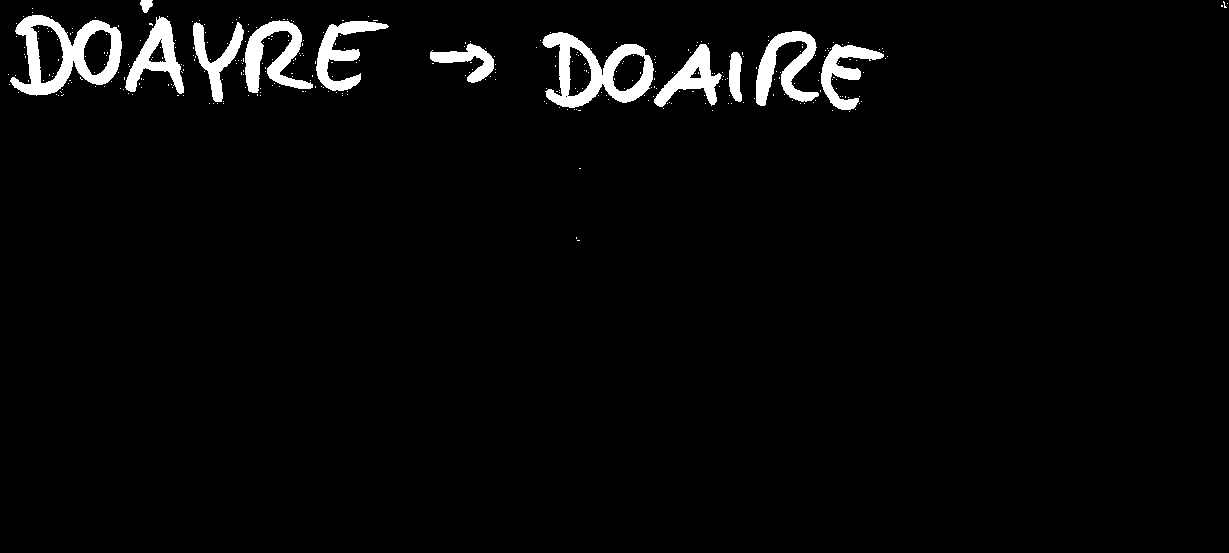 DOAYRE → DOAIRE